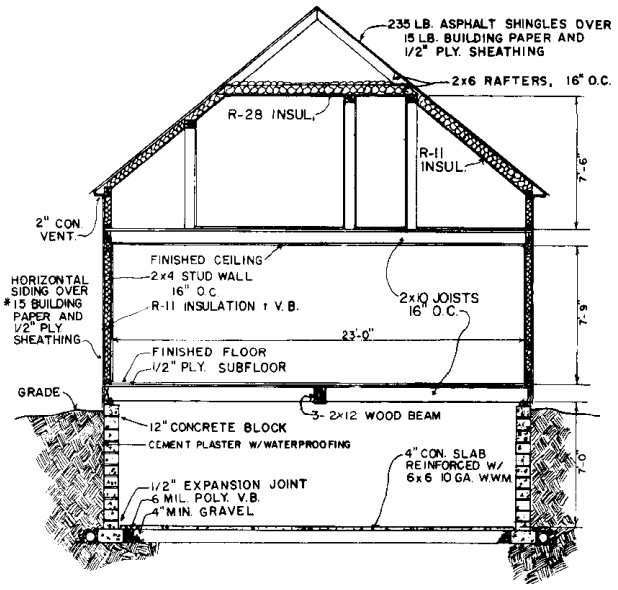 235 LB. ASPHALT SHINGLES OVER
15 LB. BUILDING PAPER AND
1/2" PLY. SHEATHING
2x6 RAFTERS, 16" O.C.
R-28 INSUL,
R-11
INSUL.
7'-6"
2" CON.
VENT.
FINISHED CEILING
2x4 STUD WALL
16" O.C.
R-11 INSULATION & V.B.
HORIZONTAL
SIDING OVER
#15 BUILDING
PAPER AND
1/2" PLY.
SHEATHING
2x10 JOISTS
16" O.C.
23'-0"
7'-9"
FINISHED FLOOR
1/2" PLY. SUBFLOOR
GRADE
3-2x12 WOOD BEAM
12" CONCRETE BLOCK
CEMENT PLASTER W/WATERPROOFING
4" CON. SLAB
REINFORCED W/
6x6 10 GA. W.W.M.
7'-0"
1/2" EXPANSION JOINT
6 MIL. POLY. V.B.
4" MIN. GRAVEL